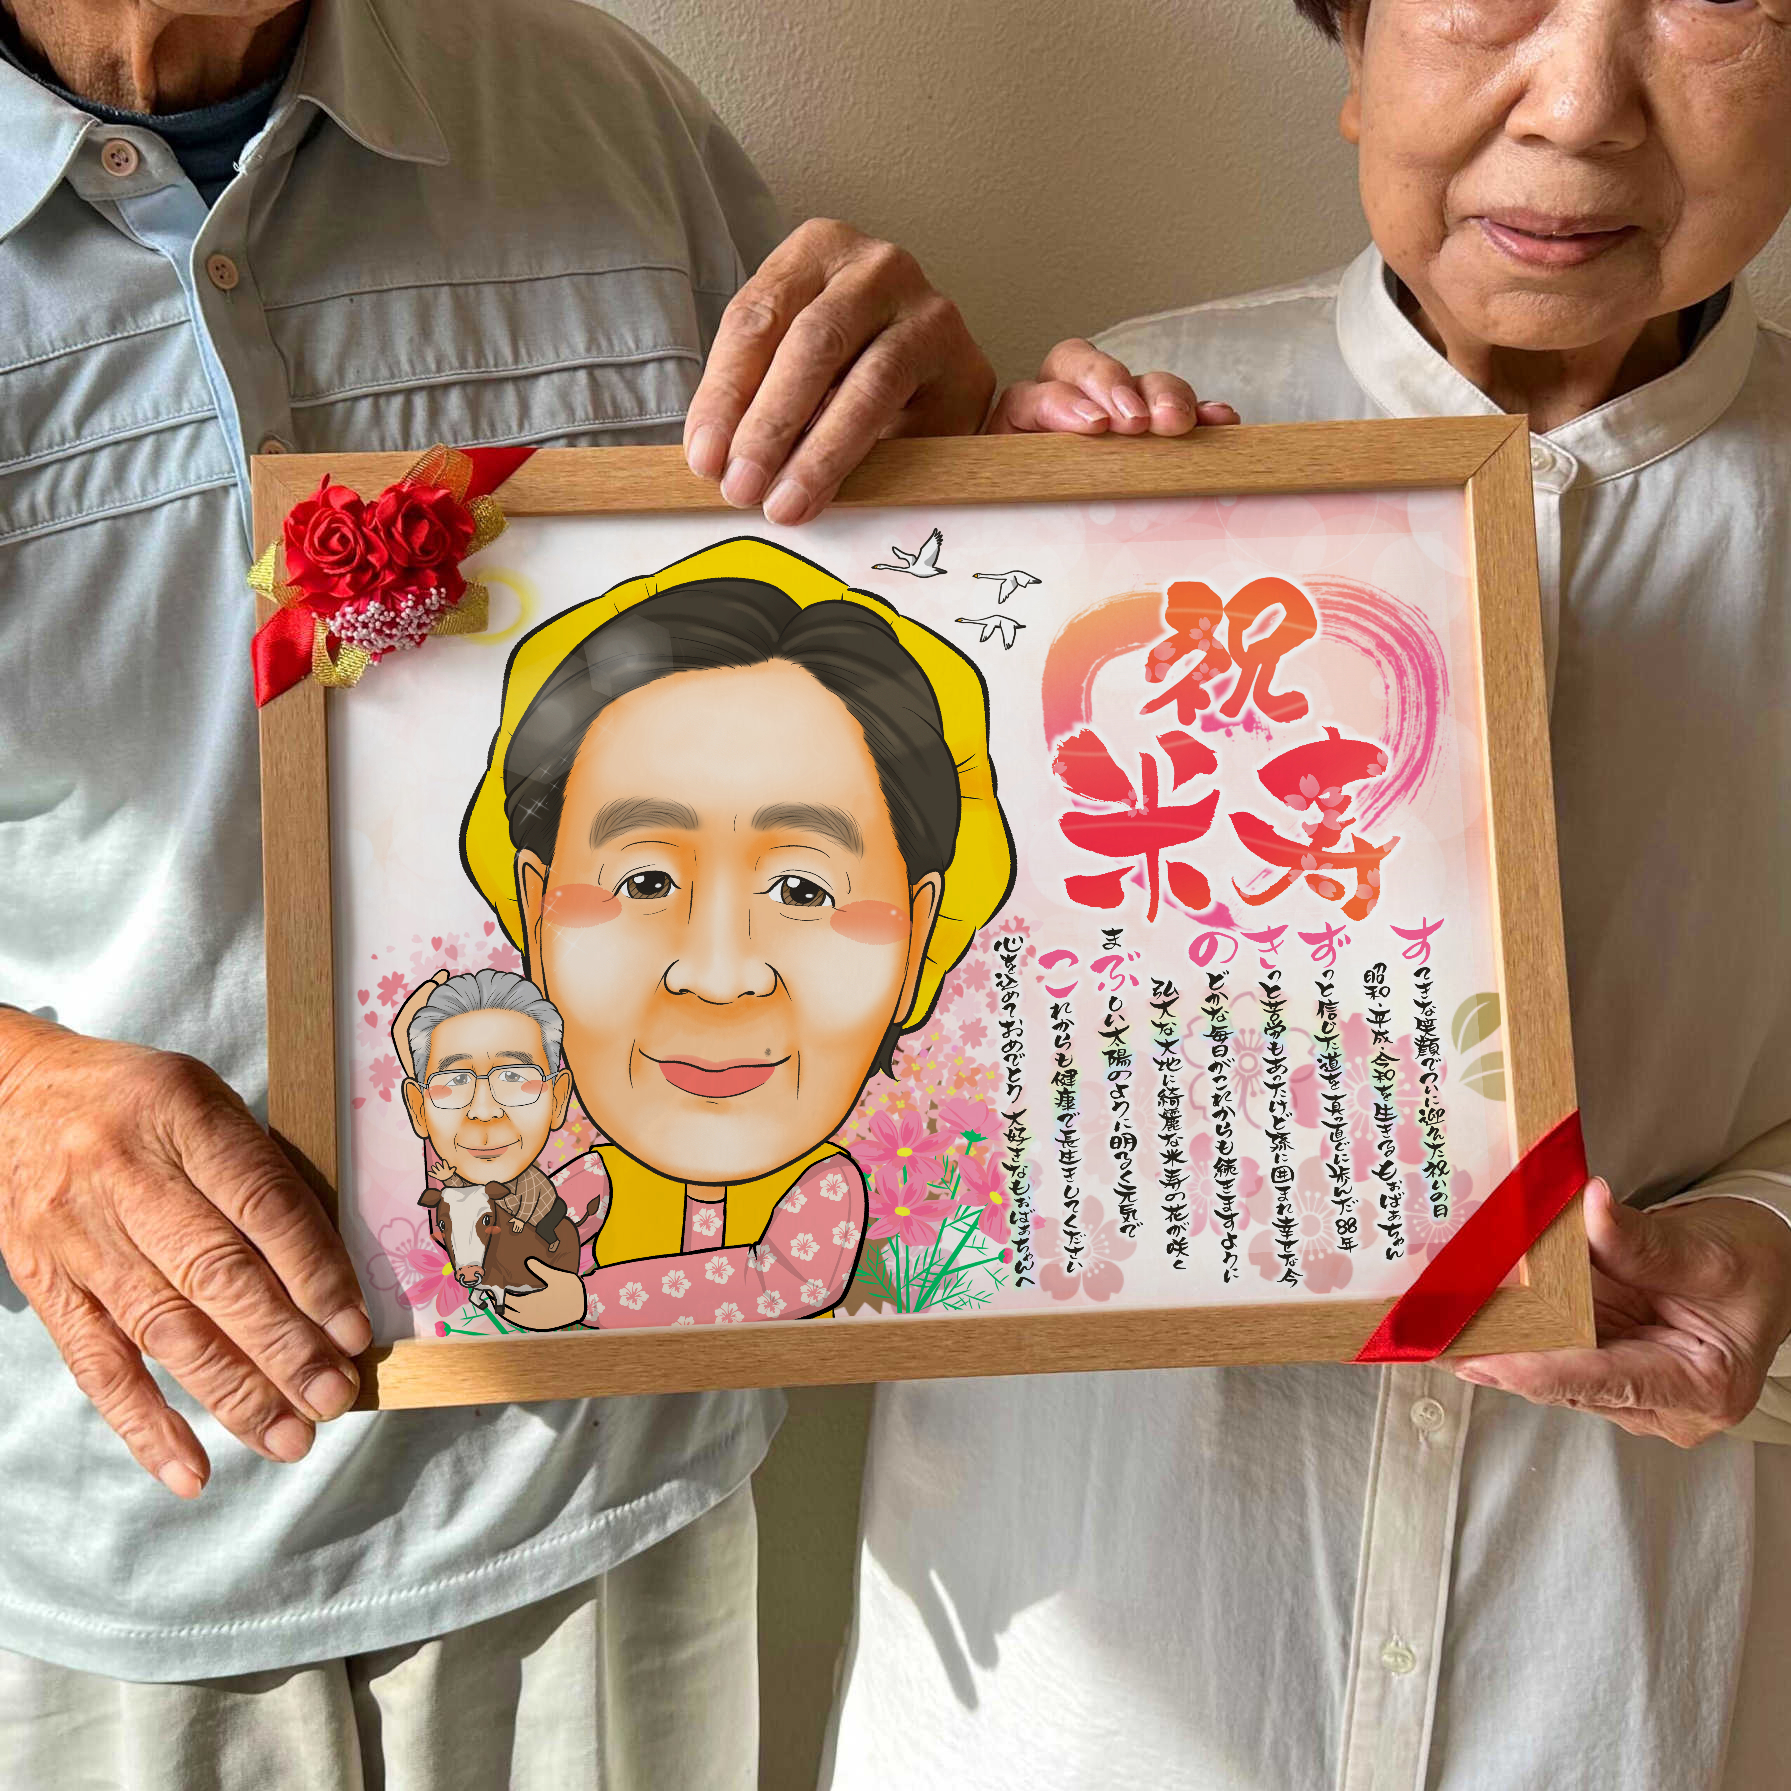 祝
米寿
すてきな笑顔でついに迎えた祝いの日
昭和・平成・令和を生きるもおばあちゃん
ずっと信じた道を真っ直ぐに歩んだ88年
きっと苦労もあったけど孫に囲まれ幸せな今
のどかな毎日がこれからも続きますように
弘大な大地に綺麗な米寿の花が咲く
まぶしい太陽のように明るく元気で
これからも健康で長生きしてください
心を込めておめでとう 大好きなもおばあちゃんへ